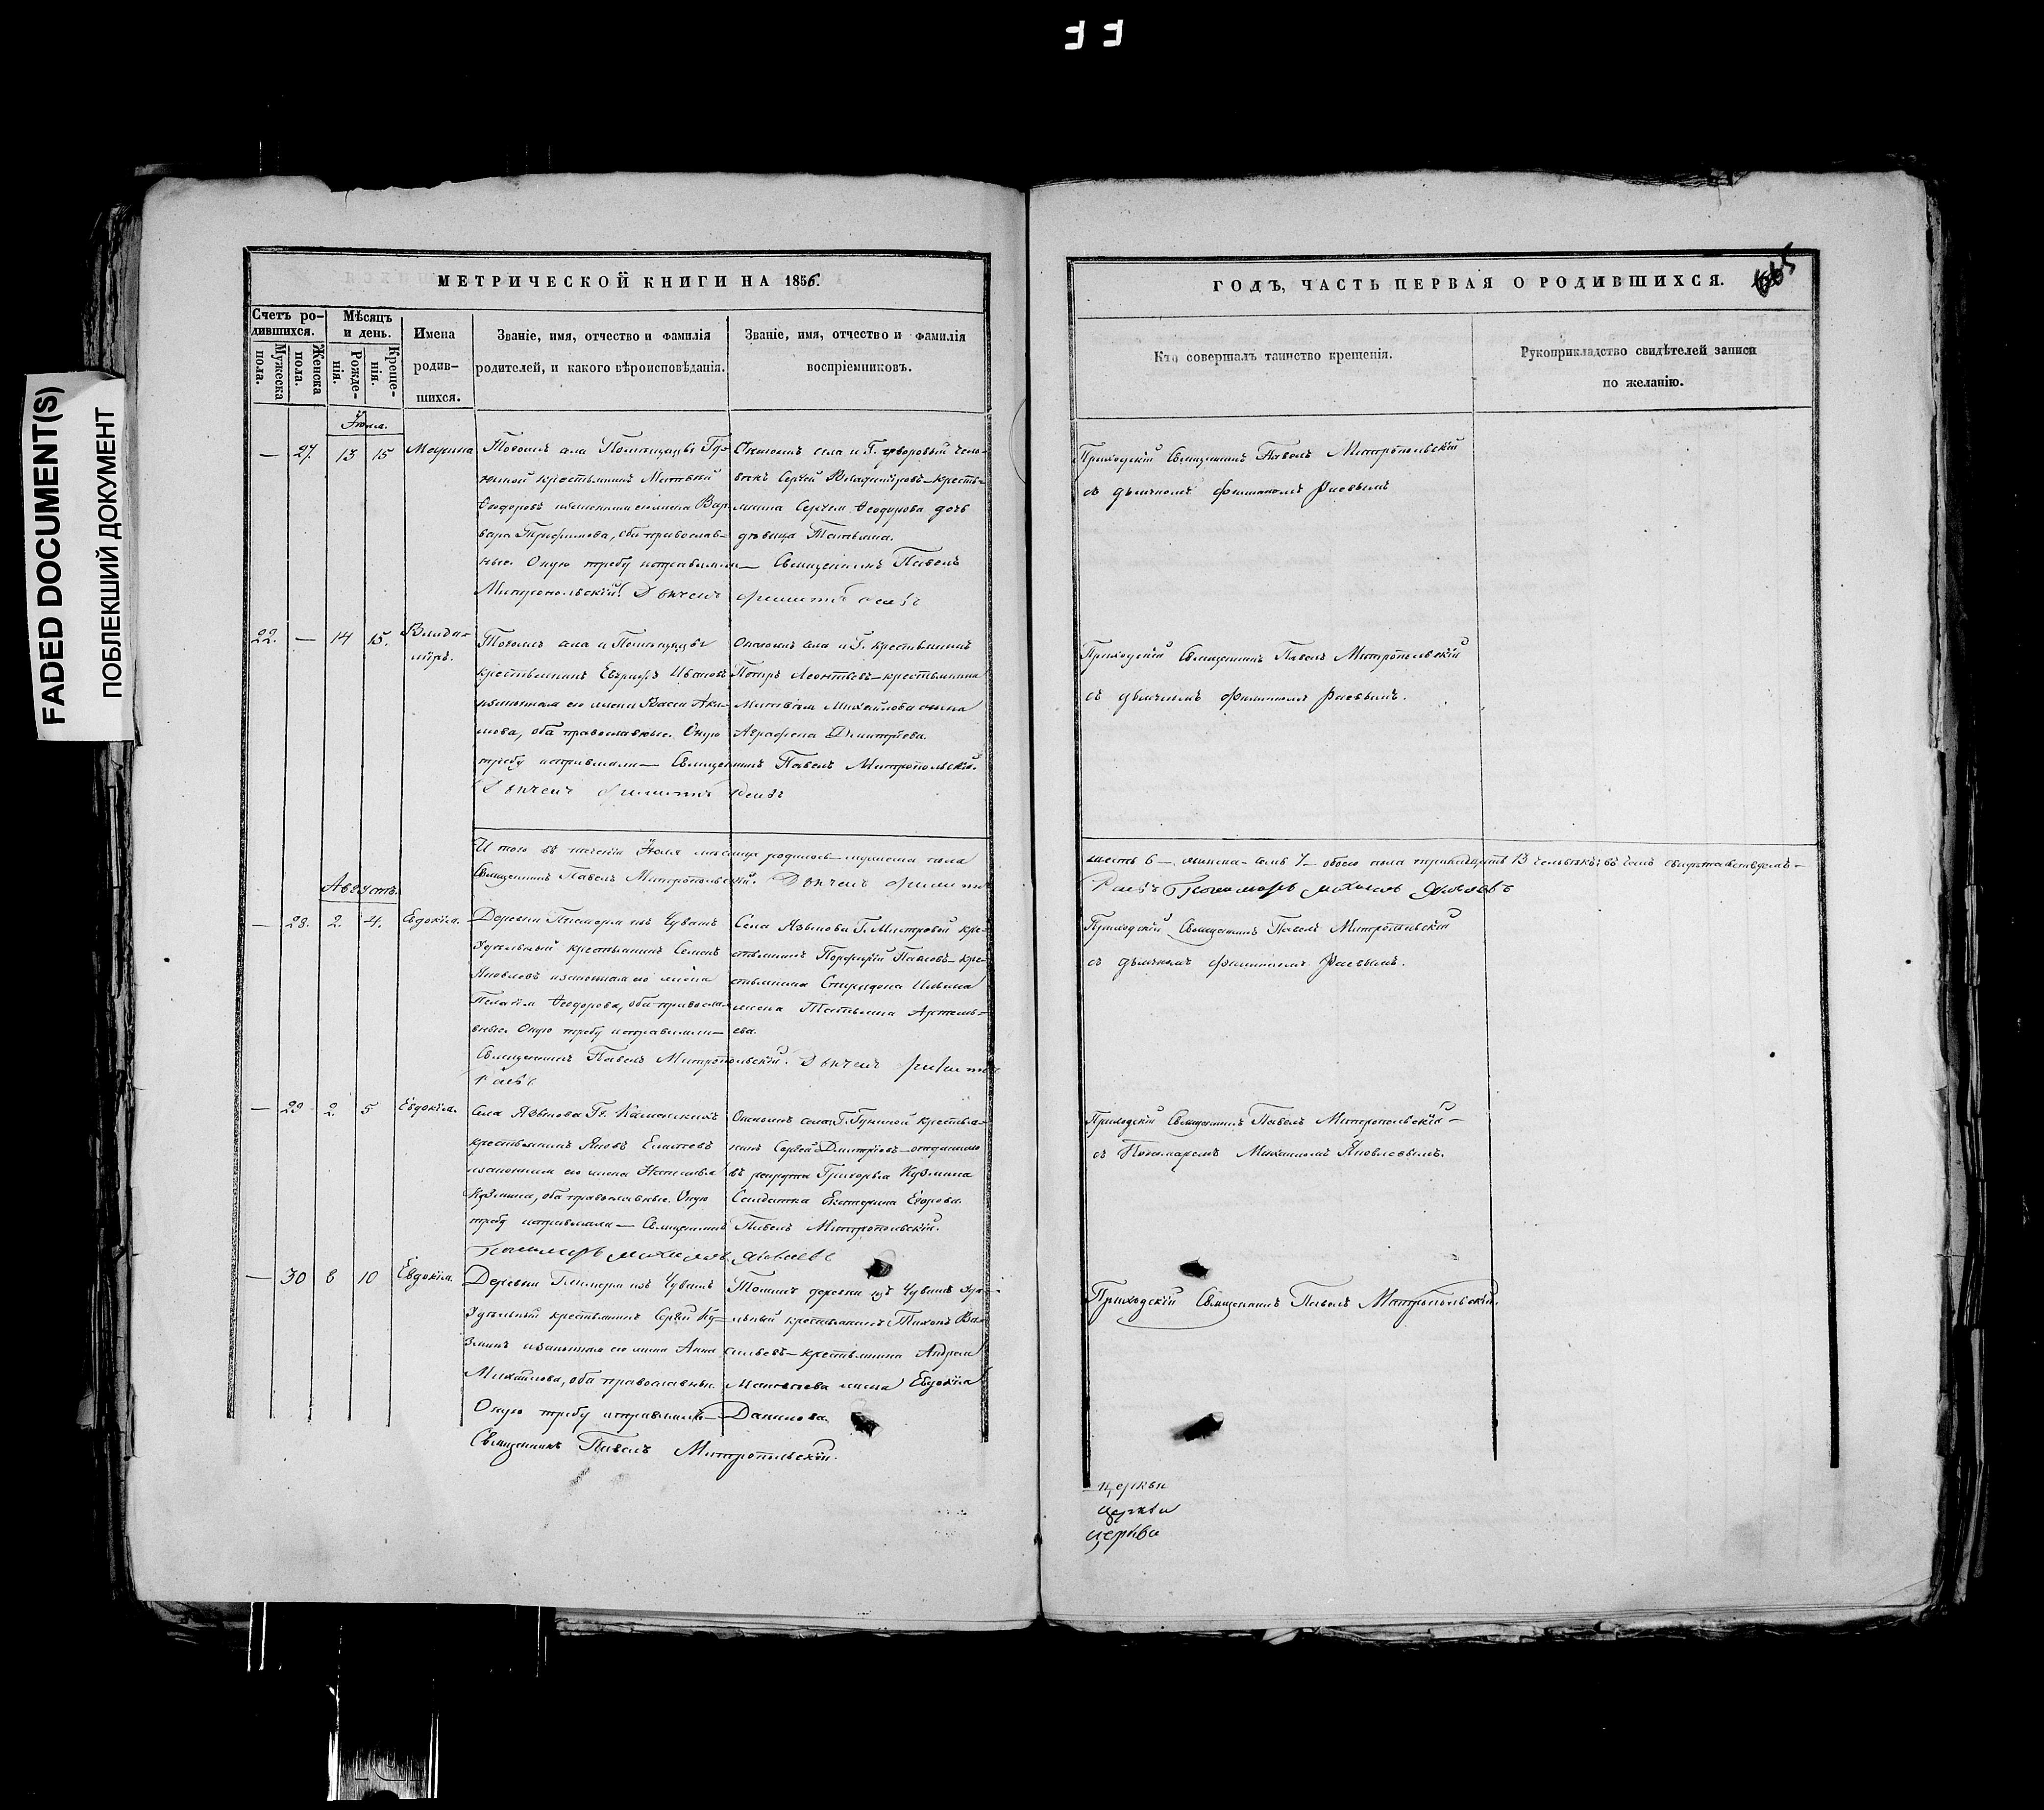 FADED DOCUMENT(S)
ПОБЛЕКШИЙ ДОКУМЕНТ
МЕТРИЧЕСКОЙ КНИГИ НА 1856.
Счетъ ро-
дившихся.
Мужеска
пола.
Женска
пола.
Мѣсяцъ
и день.
Рожде-
нія.
Креще-
нія.
Имена
родив-
шихся.
Званіе, имя, отчество и фамилія
родителей, и какого вѣроисповѣданія.
Званіе, имя, отчество и фамилія
воспріемниковъ.
Іюля.
— 27. 13 15 Маѵрина
Тогожъ села Помѣщицы Гу-
ниной крестьянинъ Матвей
Ѳеодоровъ и законная его жена Вар-
вара Трофимова, оба православ-
ные. Оную требу исправляли— Священникъ Павелъ
Митропольскій. Дьячекъ
Онагожъ села и Г. дворовый чело-
вѣкъ Сергей Владиміровъ—кресть-
янина Ѳеодорова дочь
дѣвица Татьяна.
22. — 14 15. Влади-
міръ.
Тогожъ села и Помѣщицы
крестьянинъ Ивановъ
и законная его жена Аки-
мова, оба православные. Оную
требу исправляли— Священникъ Павелъ Митропольскій.
Дьячекъ
Онагожъ села и Г. крестьянинъ
Петръ Леонтьевъ—крестьянина
Михайлова жена
Аграфена Дмитріева.
И того въ теченіи Іюля месяца родилось—мужеска пола
Священникъ Павелъ Митропольскій. Дьячекъ
Августъ.
— 28. 2. 4. Евдокія.
Деревни изъ Чувашъ
Удѣльный крестьянинъ Семенъ
Яковлевъ и законная его жена
Пелагія Ѳеодорова, оба правосла-
вные. Оную требу исправляли—
Священникъ Павелъ Митропольскій. Дьячекъ
Села Языкова Г. кре-
стьянинъ Порфирій Павловъ—кре-
стьянина Спиридона Ильина
жена Татьяна Артемь-
ева.
— 29 2 5 Евдокія.
Села Языкова Гг.
крестьянинъ Яковъ
и законная его жена Наталья
Кузмина, оба православные. Оную
требу исправляли— Священникъ Павелъ Митропольскій.
Пономарь Михаилъ Яковлевъ
Онагожъ села Г. Гуниной крестья-
нинъ Сергей Дмитріевъ—отданнаго
въ рекруты Григорья Кузмина
Солдатка Екатерина Егорова.
— 30 8 10 Евдокія.
Деревни изъ Чувашъ
Удѣльный крестьянинъ Сергей Ку-
зминъ и законная его жена Анна
Михайлова, оба православные.
Оную требу исправлялъ—
Священникъ Павелъ Митропольскій.
Тойжъ деревни изъ Чувашъ Удѣ-
льный крестьянинъ Тихонъ Ва-
сильевъ—крестьянина Андрея
Матвѣева жена Евдокія
Данилова.
ГОДЪ, ЧАСТЬ ПЕРВАЯ О РОДИВШИХСЯ.
Кто совершалъ таинство крещенія.
Рукоприкладство свидѣтелей записи
по желанію.
Приходскій Священникъ Павелъ Митропольскій
съ дьячкомъ Филиппомъ Раевымъ
Приходскій Священникъ Павелъ Митропольскій
съ дьячкомъ Филиппомъ Раевымъ.
шесть 6—женска—семь 7—обоего пола тринадцать 13 человѣкъ; въ чемъ свидѣтельствуемъ—
Раевъ Пономарь Михаилъ Яковлевъ
Приходскій Священникъ Павелъ Митропольскій
съ дьячкомъ Филиппомъ Раевымъ.
Приходскій Священникъ Павелъ Митропольскій—
съ Пономаремъ Михаиломъ Яковлевымъ.
Приходскій Священникъ Павелъ Митропольскій.
церкви
церкви
церкви